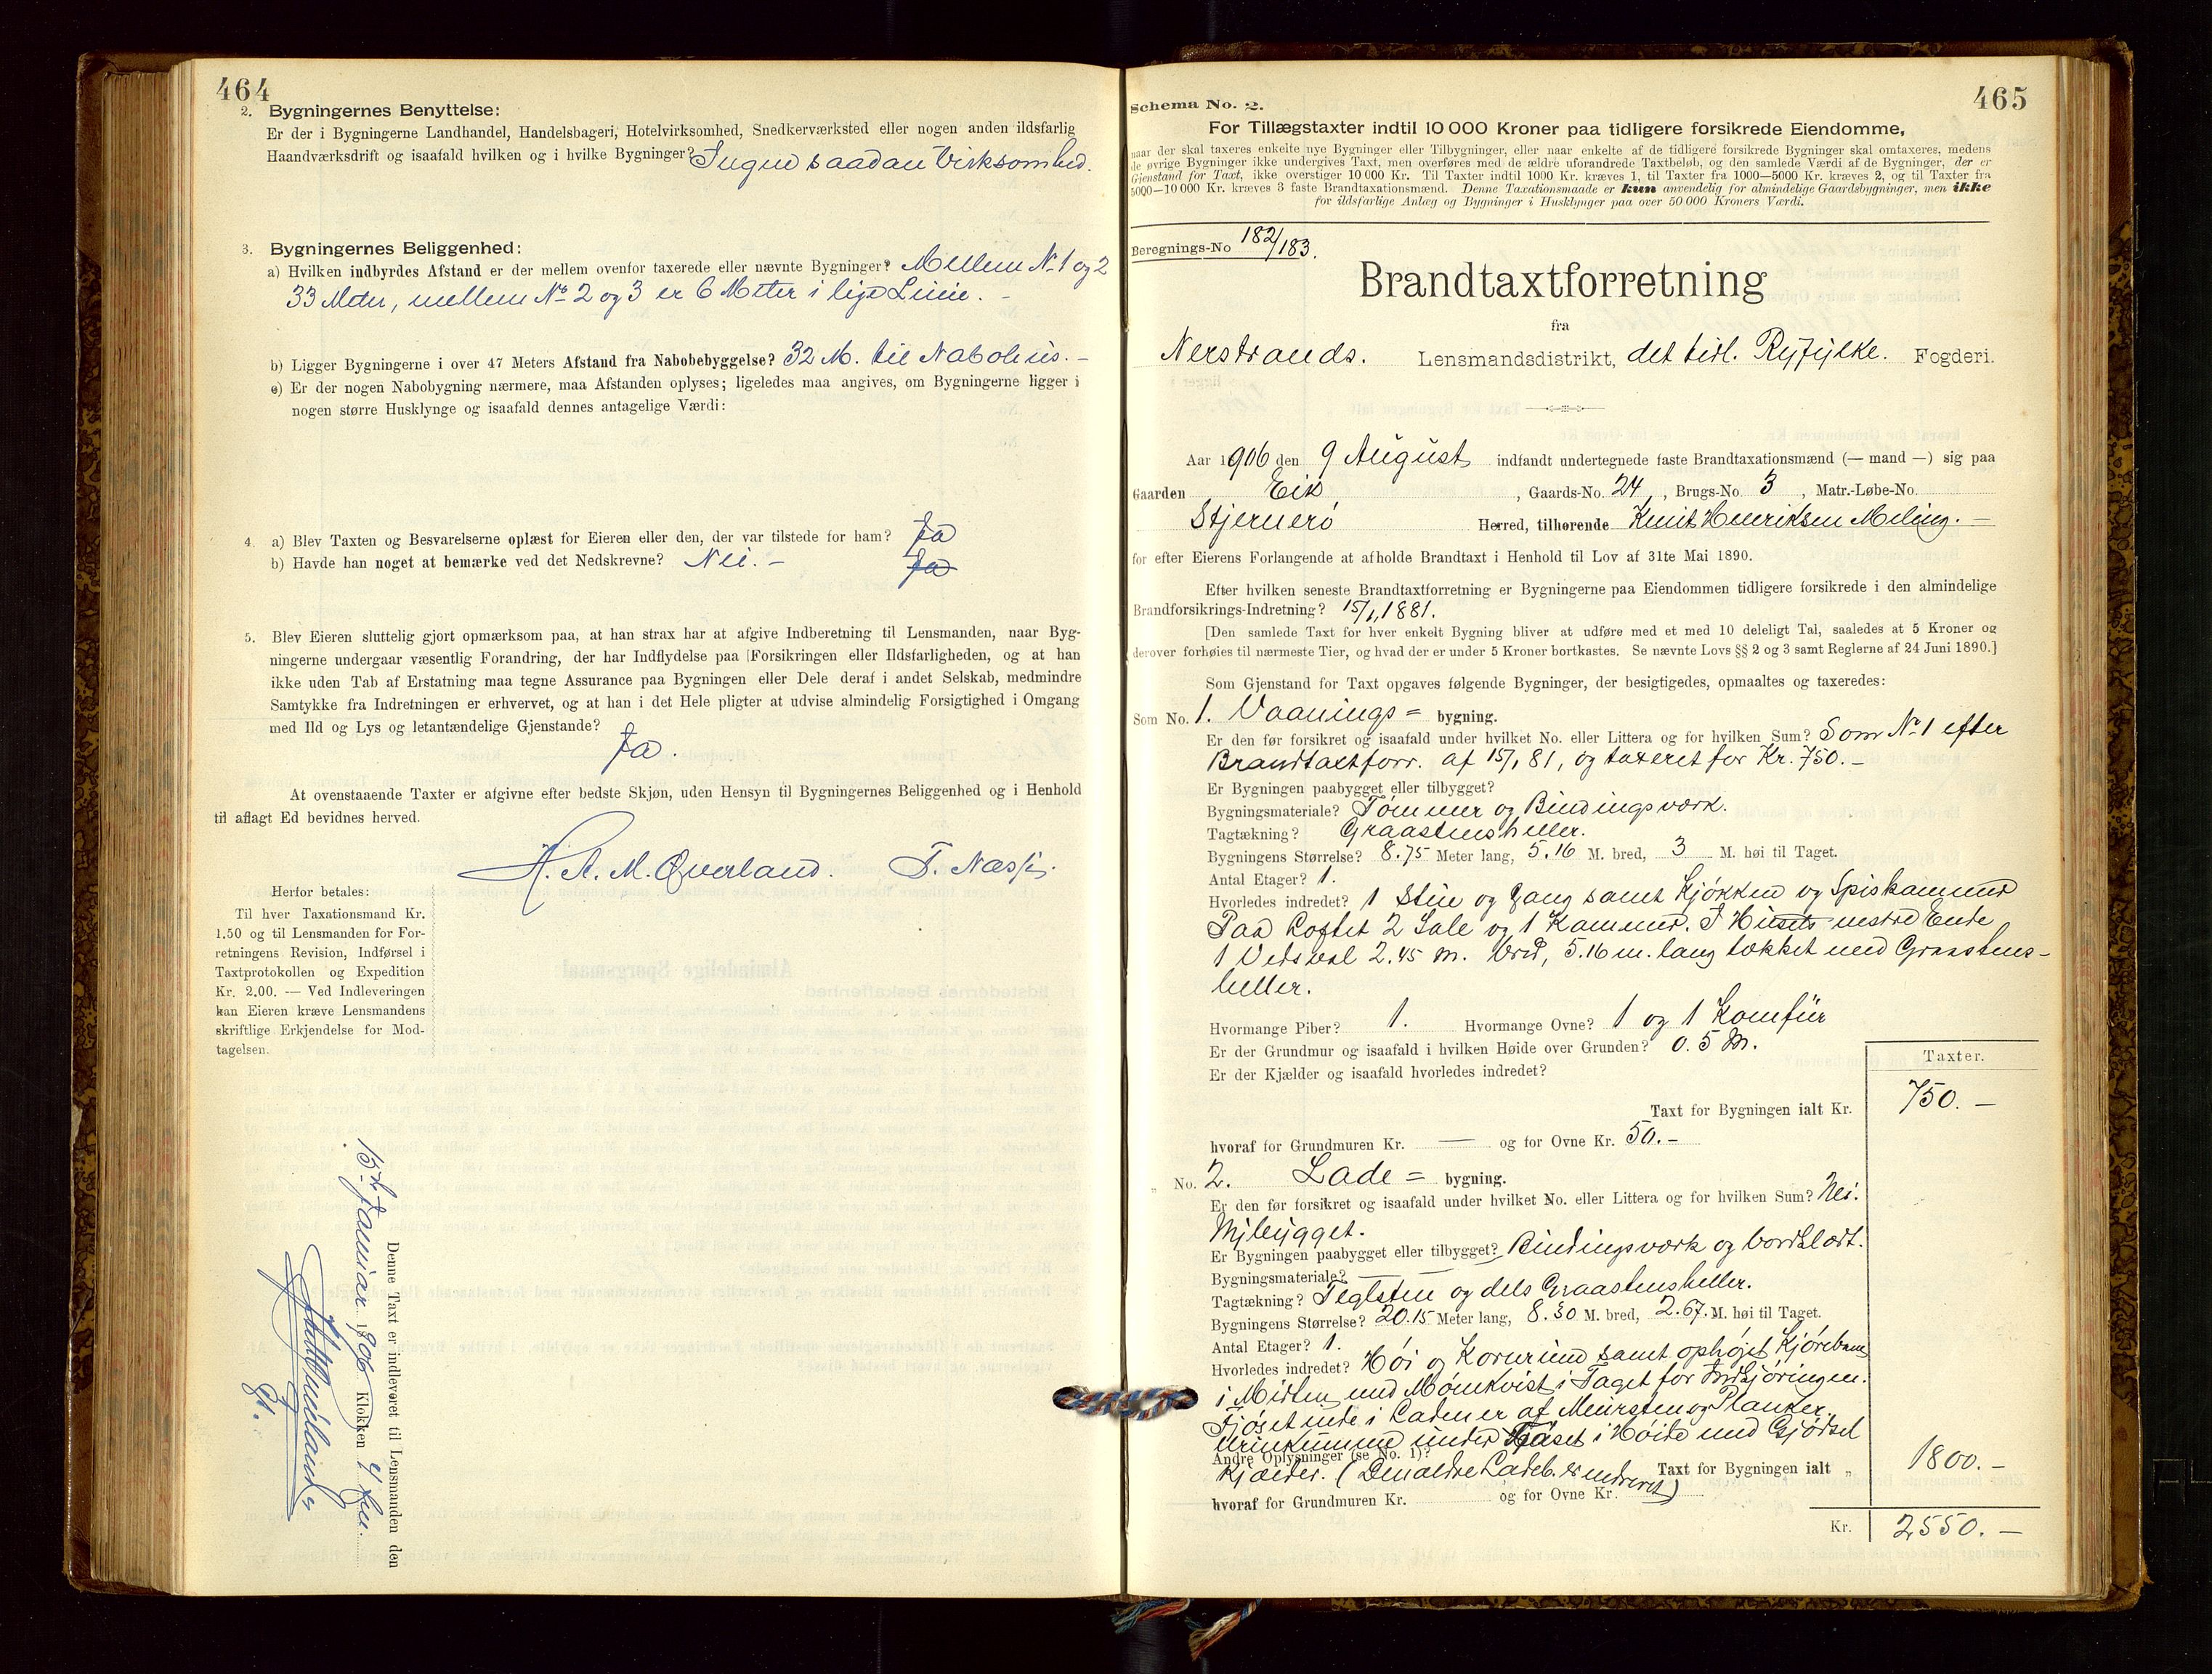 464
2. Bygningernes Benyttelse:
Er der i Bygningerne Landhandel, Handelsbageri, Hotelvirksomhed, Snedkerværksted eller nogen anden ildsfarlig
Haandværksdrift og isaafald hvilken og i hvilke Bygninger? Ingen saadan Virksomhed.
3. Bygningernes Beliggenhed:
a) Hvilken indbyrdes Afstand er der mellem ovenfor taxerede eller nævnte Bygninger? Mellem No 1 og 2
33 Meter, mellem No 2 og 3 er 6 Meter i lige Linie. –
b) Ligger Bygningerne i over 47 Meters Afstand fra Nabobebyggelse? 32 M. til Nabohus. –
c) Er der nogen Nabobygning nærmere, maa Afstanden oplyses; ligeledes maa angives, om Bygningerne ligger i
nogen større Husklynge og isaafald dennes antagelige Værdi:
4. a) Blev Taxten og Besvarelserne oplæst for Eieren eller den, der var tilstede for ham? Ja
b) Havde han noget at bemærke ved det Nedskrevne? Nei. – Ja
5. Blev Eieren sluttelig gjort opmærksom paa, at han strax har at afgive Indberetning til Lensmanden, naar Byg-
ningerne undergaar væsentlig Forandring, der har Indflydelse paa [Forsikringen eller Ildsfarligheden, og at han
ikke uden Tab af Erstatning maa tegne Assurance paa Bygningen eller Dele deraf i andet Selskab, medmindre
Samtykke fra Indretningen er erhvervet, og at han i det Hele pligter at udvise almindelig Forsigtighed i Omgang
med Ild og Lys og letantændelige Gjenstande?
Ja.
At ovenstaaende Taxter er afgivne efter bedste Skjøn, uden Hensyn til Bygningernes Beliggenhed og i Henhold
til aflagt Ed bevidnes herved.
H. A. M. Qverland. T. Næss
Herfor betales:
Til hver Taxationsmand Kr.
1.50 og til Lensmanden for For-
retningens Revision, Indførsel i
Taxtprotokollen og Expedition
Kr. 2.00. — Ved Indleveringen
kan Eieren kræve Lensmandens
skriftlige Erkjendelse for Mod-
tagelsen.
Denne Taxt er indleveret til Lensmanden den
15de Januar 1906 Klokken 4 Em.
465
Schema No. 2.
For Tillægstaxter indtil 10 000 Kroner paa tidligere forsikrede Eiendomme,
naar der skal taxeres enkelte nye Bygninger eller Tilbygninger, eller naar enkelte af de tidligere forsikrede Bygninger skal omtaxeres, medens
de øvrige Bygninger ikke undergives Taxt, men overføres med de ældre uforandrede Taxtbeløb, og den samlede Værdi af de Bygninger, der er
Gjenstand for Taxt, ikke overstiger 10 000 Kr. Til Taxter indtil 1000 Kr. kræves 1, til Taxter fra 1000—5000 Kr. kræves 2, og til Taxter fra
5000—10 000 Kr. kræves 3 faste Brandtaxationsmænd. Denne Taxationsmaade er kun anvendelig for almindelige Gaardsbygninger, men ikke
for ildsfarlige Anlæg og Bygninger i Husklynger paa over 50 000 Kroners Værdi.
Beregnings-No 182/183.
Brandtaxtforretning
fra
Nerstrands. Lensmandsdistrikt, det tidl. Ryfylke. Fogderi.
Aar 1906 den 9 August indfandt undertegnede faste Brandtaxationsmænd (— mand —) sig paa
Gaarden Eik, Gaards-No. 24, Brugs-No. 3, Matr.-Løbe-No.
Stjernerö Herred, tilhørende Knut Henriksen Meling. –
for efter Eierens Forlangende at afholde Brandtaxt i Henhold til Lov af 31te Mai 1890.
Efter hvilken seneste Brandtaxtforretning er Bygningerne paa Eiendommen tidligere forsikrede i den almindelige
Brandforsikrings-Indretning? 15/1, 1881.
[Den samlede Taxt for hver enkelt Bygning bliver at udføre med et med 10 deleligt Tal, saaledes at 5 Kroner og
derover forhøies til nærmeste Tier, og hvad der er under 5 Kroner bortkastes. Se nævnte Lovs §§ 2 og 3 samt Reglerne af 24 Juni 1890.]
Som Gjenstand for Taxt opgaves følgende Bygninger, der besigtigedes, opmaaltes og taxeredes:
Som No. 1. Vaanings= bygning.
Er den før forsikret og isaafald under hvilket No. eller Littera og for hvilken Sum? Som No 1 efter
Brandtaxtforr. af 15/1 81, og taxeret for Kr. 750. –
Er Bygningen paabygget eller tilbygget?
Bygningsmateriale? Tömmer og Bindingsværk.
Tagtækning? Graastensheller.
Bygningens Størrelse? 8.75 Meter lang, 5.16 M. bred, 3 M. høi til Taget.
Antal Etager? 1.
Hvorledes indredet? 1 Stue og Gang samt Kjökken og Spiskammer
Paa Loftet 2 Sale og 1 Kammer. I Husets vestre Ende
1 Vedsval 2.45 m. bred, 5.16 m. lang tækket med Graastens-
heller.
Hvormange Piber? 1. Hvormange Ovne? 1 og 1 Komfur
Er der Grundmur og isaafald i hvilken Høide over Grunden? 0.5 M.
Er der Kjælder og isaafald hvorledes indredet?
Taxter.
Taxt for Bygningen ialt Kr. 750. –
hvoraf for Grundmuren Kr. — og for Ovne Kr. 50. –
„ No. 2. Lade= bygning.
Er den før forsikret og isaafald under hvilket No. eller Littera og for hvilken Sum? Nei.
Nybygget.
Er Bygningen paabygget eller tilbygget? Bindingsværk og bordklædt.
Bygningsmateriale?
Tagtækning? Teglsten og dels Graastensheller.
Bygningens Størrelse? 20.15 Meter lang, 8.30 M. bred, 2.67 M. høi til Taget.
Antal Etager? 1.
Hvorledes indredet? Höi og Kornrum samt ophöjet Kjörebane
i Midten med Mönekvist i Taget for Indkjöringen.
Fjöset inde i Laden er af Mursten og Planker
Urinkumme under Fjöset i Höide med Gjödsel
Andre Oplysninger (se No. 1)?
kjælder. (Den ældre Ladeb. er nedrevet) Taxt for Bygningen ialt „ 1800. –
hvoraf for Grundmuren Kr. og for Ovne Kr.
Kr. 2550. –